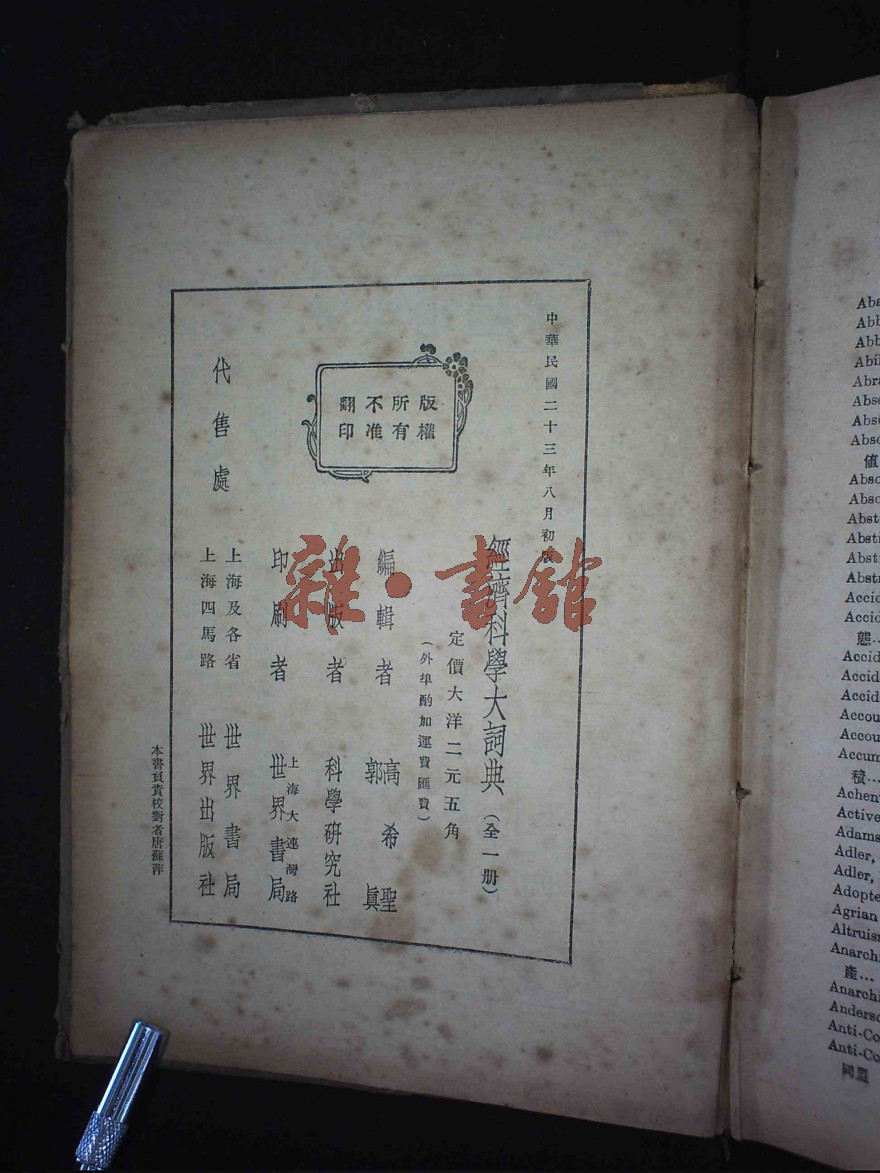 中華民國二十三年八月初版
經濟科學大詞典（全一册）
定價大洋二元五角
（外埠酌加運費匯費）
版權
所有
不准
翻印
編輯者 高希聖
郭真
出版者 科學研究社
印刷者 上海大連灣路
世界書局
代售處
上海及各省 世界書局
上海四馬路 世界出版社
本書負責校對者唐蘇萍
雜·書館
值
Absc
Absc
Abst
Absti
Abstr
Abstr
Accid
Accid
態...
Accid
Accid
Accid
Accou
Accou
Accum
積...
Achen
Active
Adams
Adler,
Adler,
Adopte
Agrian
Altruism
Anarchi
產...
Anarchi
Anderso
Anti-Co
Anti-Co
同盟